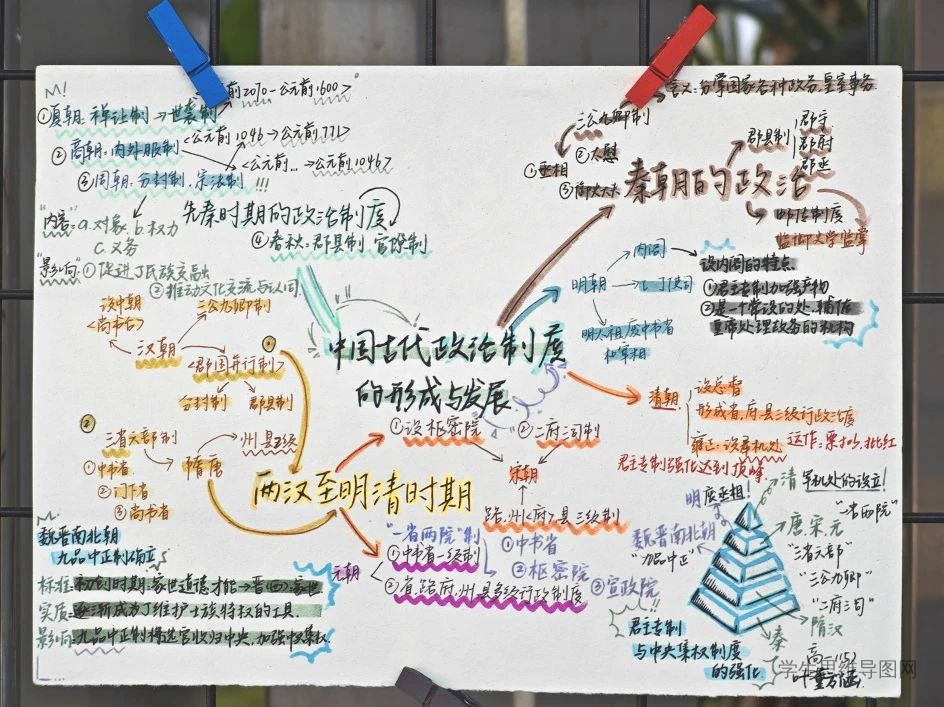 ①夏朝:禅让制→世袭制
前2070-公元前1600>
②商朝:内外服制
<公元前1046→公元前771>
<公元前...→公元前1046>
③周朝:分封制、宗法制!!!
"内容":a.对象 b.权力
c.义务
先秦时期的政治制度
④春秋:郡县制、官僚制
"影响":①促进了民族交融
②推动文化交流与认同
设中朝
<尚书台>
三公九卿制
汉朝
<郡国并行制>
分封制
郡县制
三省六部制
①中书省
②门下省
③尚书省
隋唐
州县2级
两汉至明清时期
魏晋南北朝
九品中正制确立
标准:初创时期:家世道德才能→晋(西):家世
实质:逐渐成为了维护士族特权的工具
影响:九品中正制将选官收归中央,加强中央集权.
中国古代政治制度
的形成与发展
三公九卿制
主义:分掌国家各种政务,皇室事务
①丞相
②太尉
③御史大夫
秦朝的政治
郡县制
郡守
郡尉
郡丞
监御史掌监察
明朝
内阁
明太祖废中书省
和宰相
设内阁的特点
①君主专制加强产物
②是一个常设的处、辅佐
皇帝处理政务的机构
清朝
设总督
形成省、府、县三级行政制度
雍正:设军机处
君主专制强化达到顶峰
①设枢密院
②二府三司制
宋朝
路、州<府>、县三级制
元朝
"一省两院"制
①中书省一级制
②省、路、府、州、县多级行政制度
①中书省
②枢密院
③宣政院
明废丞相!
清 军机处的设立!
魏晋南北朝
"九品中正"
唐宋元
"一省两院"
"三省六部"
"三公九卿"
"二府三司"
隋汉
秦
君主专制
与中央集权制度
的强化
高一(15)
学生思维导图网